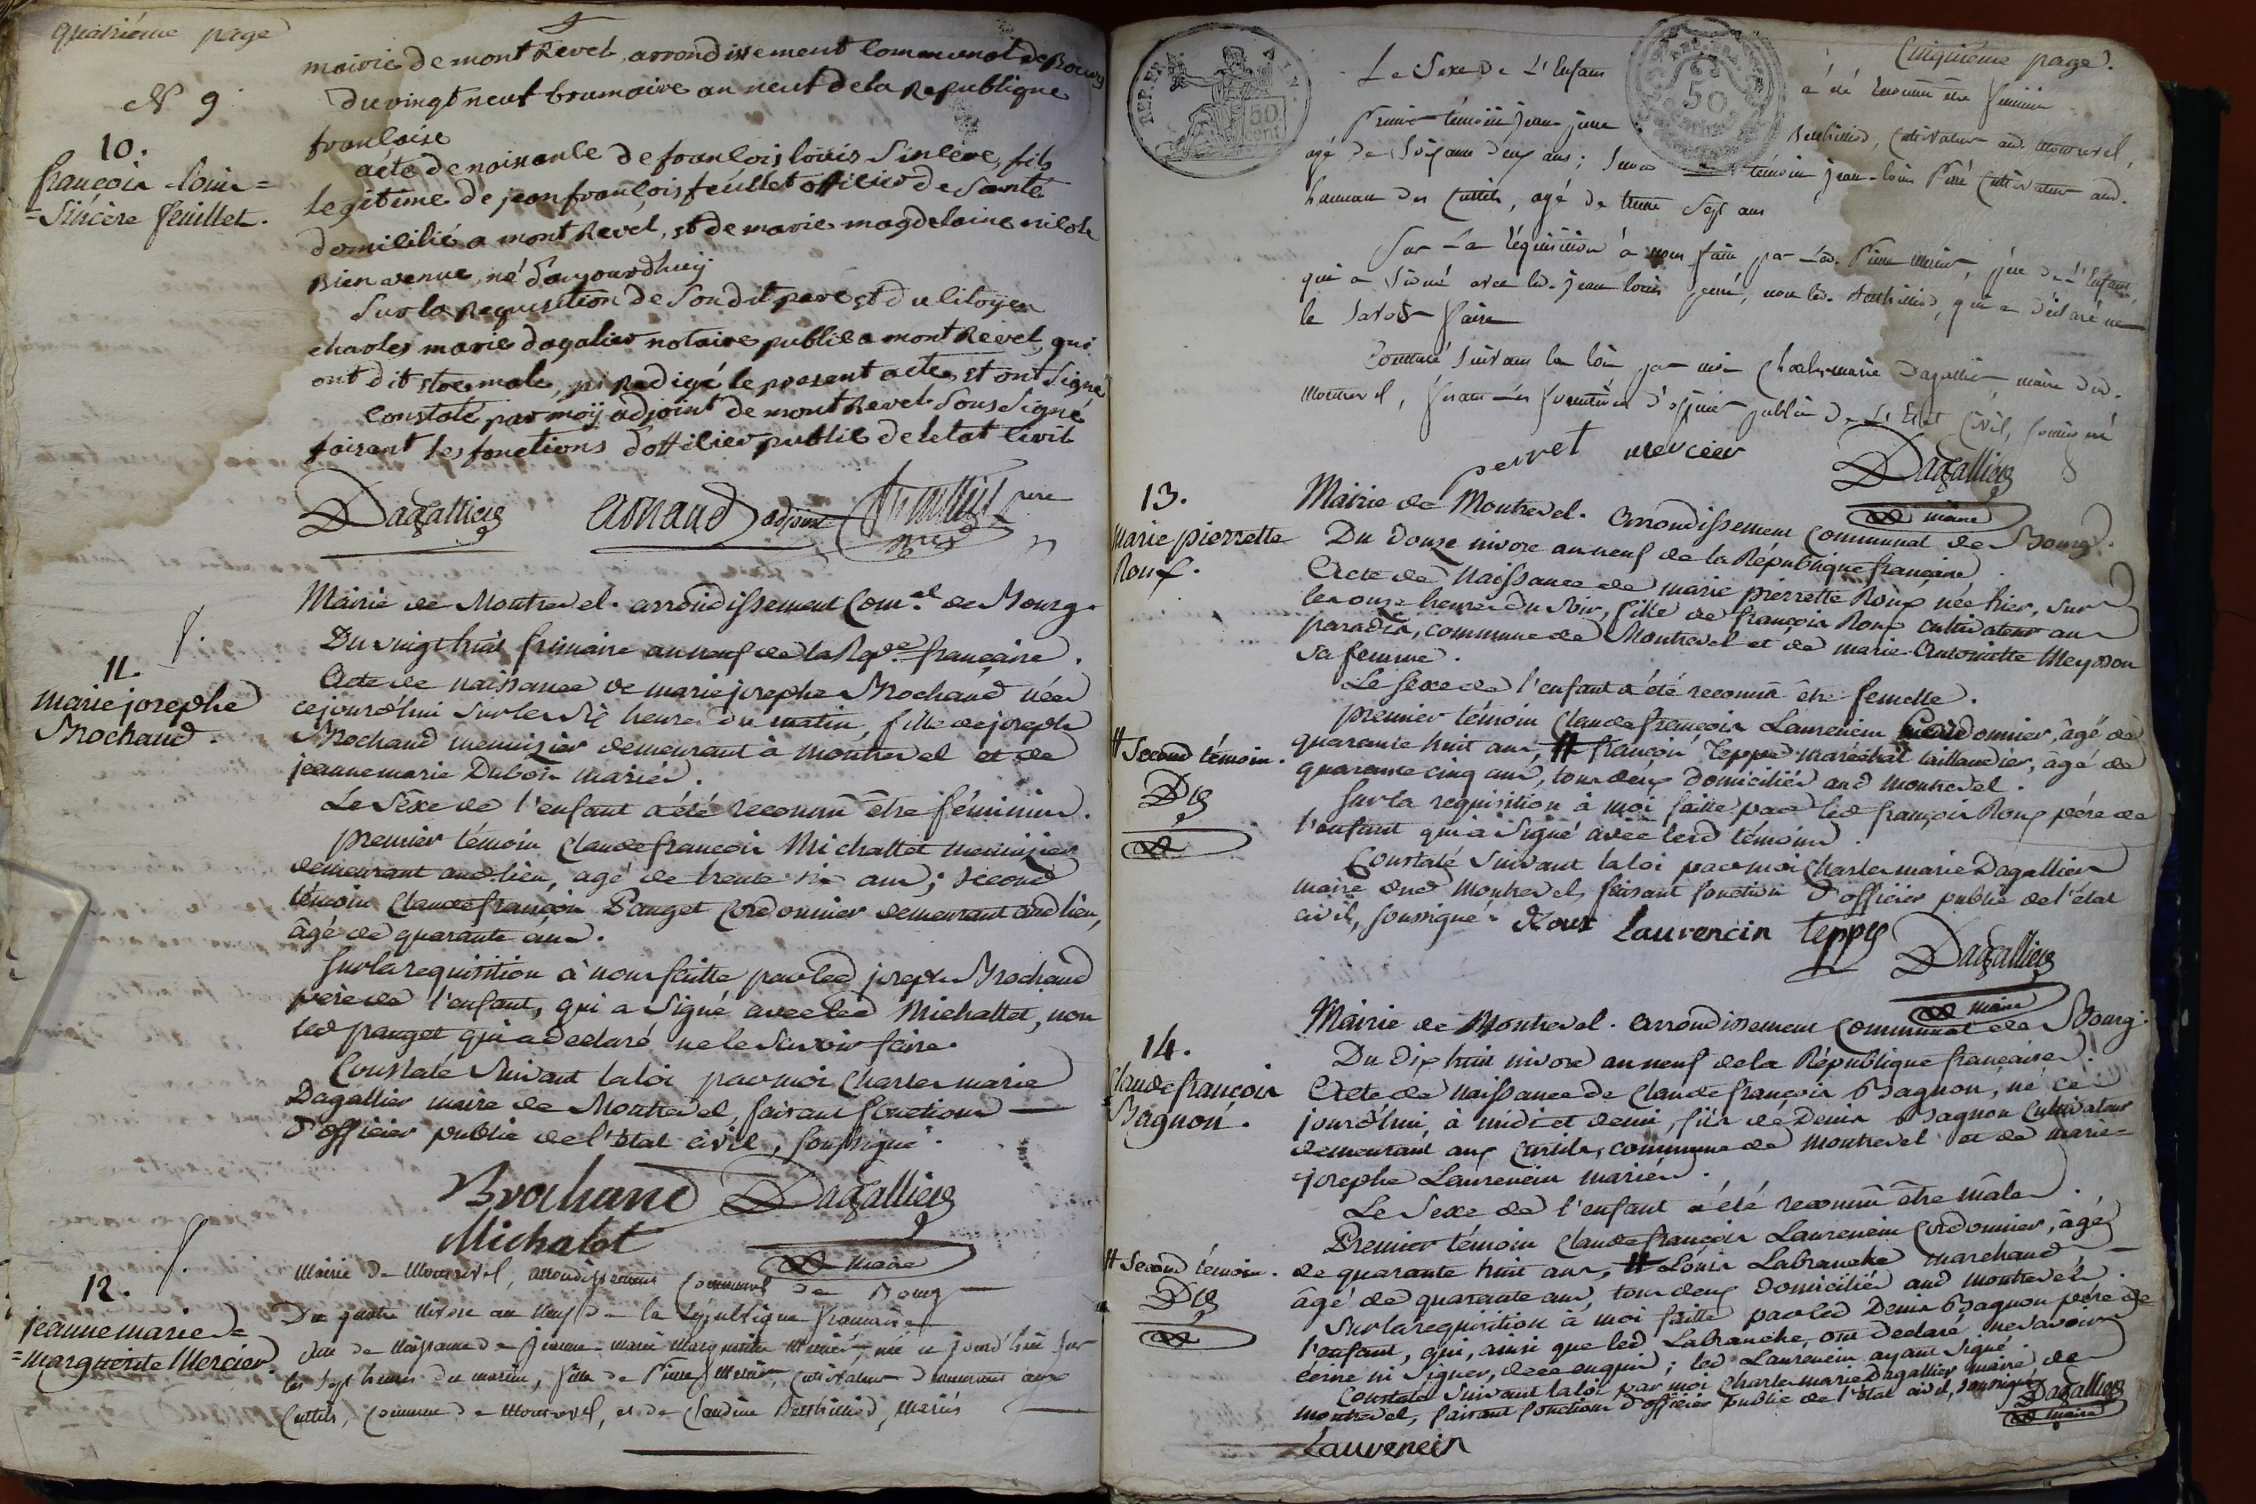 quatriéme page
N 9
mairie de mont Revel, arrondissement Communal de Bourg
du vingt neuf brumaire an neuf de la Republique
francaise
10.
françois-louis=
=Sincère feuillet.
acte de naissance de francois louis Sincère, fils
legitime de jean françois feuillet officier de Santé
domicilié a mont Revel, et de marie magdelaine nicole
Bienvenue, né d'aujourdhuy
Sur la Requisition de Son dit pere et du citoyen
charles marie dagalier notaire public a mont Revel, qui
ont dit etre male, jai Redigé le present acte et ont Signé
Constaté par moÿ adjoint de mont Revel Sous Signé
faisant les fonctions d'officier public de letat Civil
Dagallier Arnaud adjoint feuillet pere
Mairie de Montrevel. arrondissement Com.al de Bourg.
Du vingt huit frimaire an neuf de la Rép.e française.
11.
marie josephe
Brochand.
Acte de naissance de marie josephe Brochand née
cejourd'hui sur les six heures du matin, fille de joseph
Brochand menuisier demeurant à montrevel et de
jeanne marie Dubois mariés.
Le Séxe de l'enfant a été reconnû être féminin.
premier témoin Claude françois Michallet menuisier
demeurant aud. lieu, agé de trente ans; second
témoin Claude françois Pauget cordonnier demeurant aud lieu,
âgé de quarante ans.
Sur la requisition à nous faitte par led joseph Brochand
père de l'enfant, qui a signé avec led Michallet, non
led pauget qui a declaré ne le savoir faire.
Constaté suivant la loi par moi Charles marie
Dagallier maire de Montrevel, faisant fonctions
d'officier public de l'état civil, soussigné.
Brochand Dagallier
Michalet maire
12.
jeanne marie=
=marguerite Mercier
Mairie de Montrevel, arrondissement Communal de Bourg
Du quatre Nivose an Neuf de la République francaise
Acte de Naissance de Jeanne-marie Marguerite Mercier, née ce jourd'hui sur
les sept heures du matin, fille de Pierre Mercier, Cultivateur demeurant aux
Cuttils, Commune de Montrevel, et de Claudine Berthillied, mariés
Cinquiéme page.
REP. FRA. AIN.
50 cent
Le Sexe de L'Enfant a été reconnu être féminin
Premier témoin jean Berthillied, Cultivateur aud. montrevel,
agé de Soixante deux ans; Second témoin jean-louis Cultivateur aud.
hameau des Cuttils, agé de trente Sept ans
Sur La réquisition à nous faite par Led. Pierre mercier, père de L'Enfant,
qui a Signé avec led. jean louis, non led. Berthillied, qui a déclaré ne
le Savoir faire
Constaté Suivant la loi par moi Charles marie Dagallier maire dud.
Montrevel, faisant les fonctions d'officier public de L'Etat Civil, soussigné
perret mercier Dagallier
maire
13.
Marie pierrette
Roux.
Mairie de Montrevel. arrondissement Communal de Bourg.
Du douze nivose an neuf de la République française.
Acte de Naissance de marie pierrette Roux née hier, sur
les onze heures du soir, fille de françois Roux cultivateur au
paradis, commune de Montrevel et de marie Antoinette Meysson
sa femme.
Le séxe de l'enfant a été reconnû être femelle.
premier témoin Claude françois Laurencin Cordonnier, âgé de
# Second témoin.
quarante huit ans, # françois Teppe maréchal taillandier, âgé de
quarante cinq ans, tous deux domiciliés aud montrevel.
Sur la requisition à moi faitte par led françois Roux père de
l'enfant qui a signé avec lesd témoins.
Constaté suivant la loi par moi Charles marie Dagallier
maire dud montrevel, faisant fonction d'officier public de l'état
civil, soussigné. Roux Laurencin teppe
Dagallier
maire
14.
Claude françois
Bagnon.
Mairie de Montrevel. arrondissement Communal de Bourg.
Du dix huit nivose an neuf de la République française.
Acte de Naissance de Claude françois Bagnon, né ce
jourd'hui, à midi et demi, fils de Denis Bagnon Cultivateur
demeurant aux Curtils, commune de Montrevel et de marie=
josephe Laurencin mariés.
Le Sexe de l'enfant a été reconnû être mâle.
Premier témoin Claude françois Laurencin Cordonnier, âgé
# Second témoin.
de quarante huit ans, # Louis Labranche marchand,
âgé de quarante ans, tous deux domiciliés aud montrevel.
Sur la requisition à moi faitte par led Denis Bagnon père de
l'enfant, qui, ainsi que led Labranche, ont declaré ne savoir
écrire ni signer, de ce enquis; led Laurencin ayant signé.
Constaté suivant la loi par moi Charles marie Dagallier maire de
montrevel, faisant fonctions d'officier public de l'état civil, soussigné.
Dagallier
maire
Laurencin